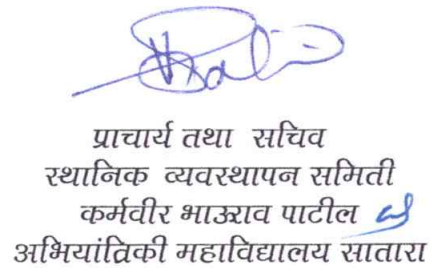 प्राचार्य तथा सचिव
स्थानिक व्यवस्थापन समिती
कर्मवीर भाऊराव पाटील
अभियांत्रिकी महाविद्यालय सातारा